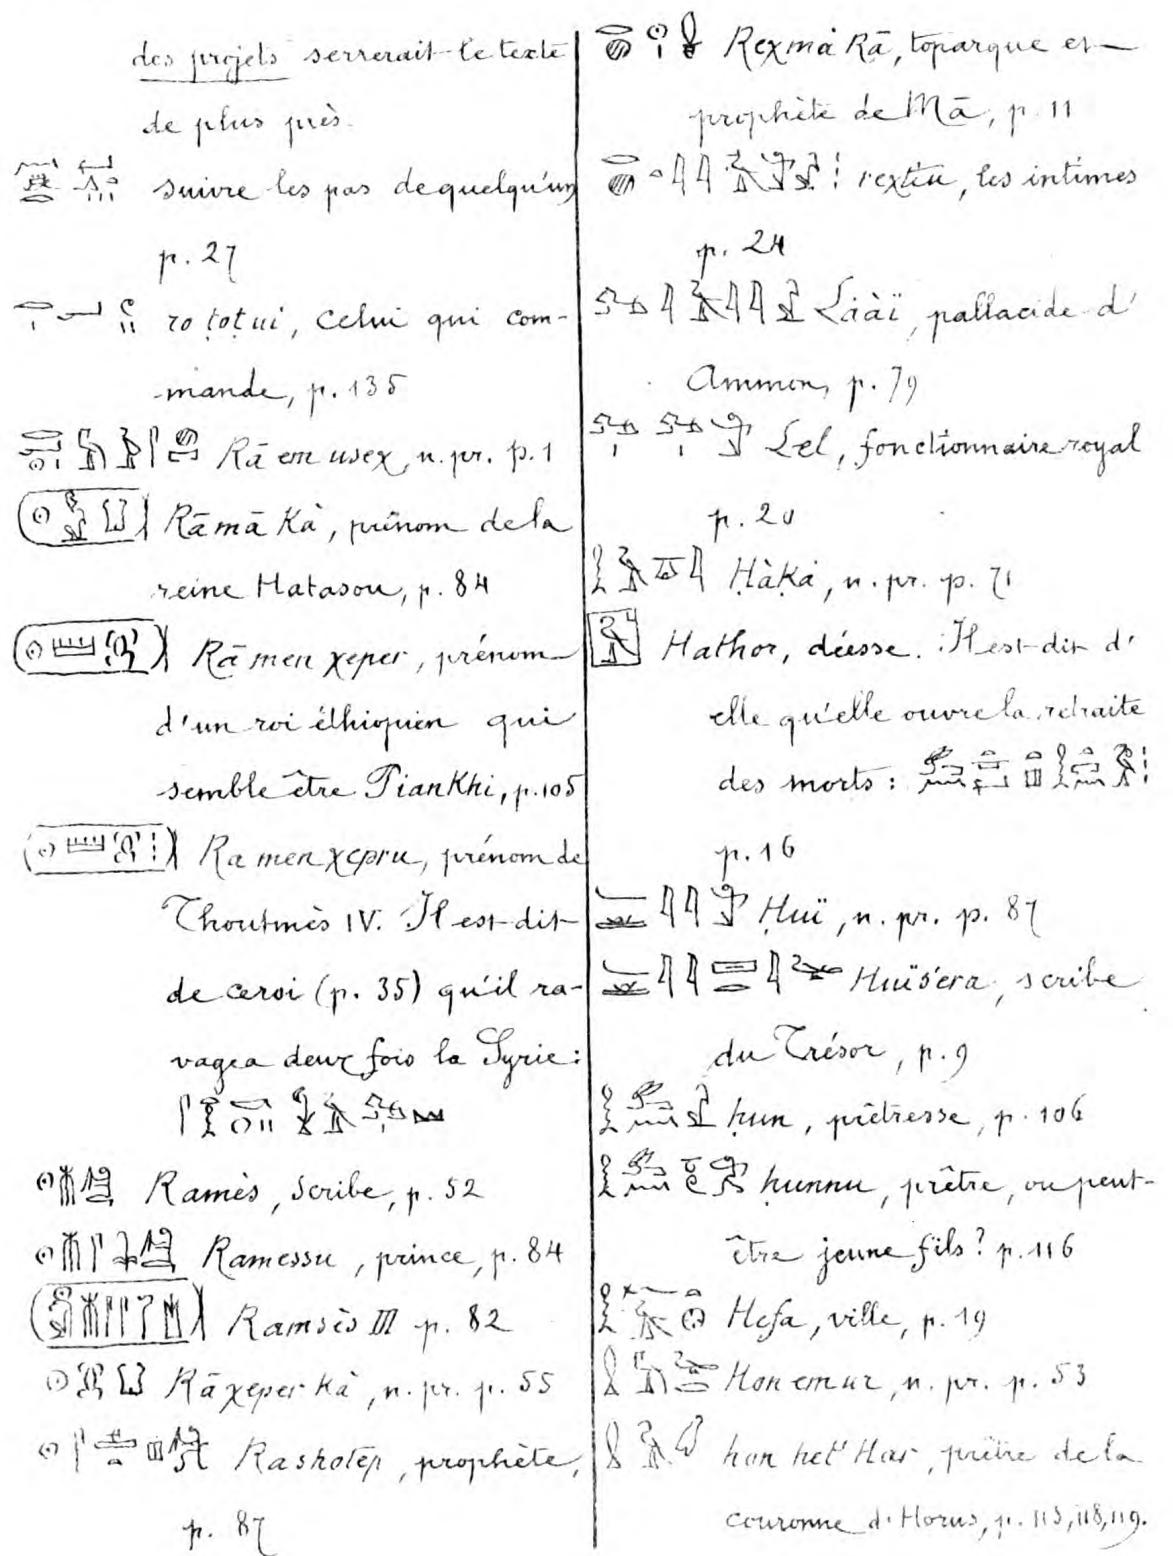 des projets serrerait le texte
de plus près.
suivre les pas de quelqu'un
p. 27
ro ṭoṭui, celui qui com-
mande, p. 135
Rā em useχ, n. pr. p. 1
Rā mā Kȧ, prénom de la
reine Hatasou, p. 84
Rā men χeper, prénom
d'un roi éthiopien qui
semble être PianKhi, p. 105
Ra men χepru, prénom de
Thoutmès IV. Il est dit
de ce roi (p. 35) qu'il ra-
vagea deux fois la Syrie:
Ramès, scribe, p. 52
Ramessu, prince, p. 84
Ramsès III p. 82
Rā χeper Kȧ, n. pr. p. 55
Rashotep, prophète,
p. 87
Reχmȧ Rā, toparque et
prophète de Mā, p. 11
reχtiu, les intimes
p. 24
Lȧȧï, pallacide d'
Ammon, p. 79
Lel, fonctionnaire royal
p. 20
ḤȧḲȧ, n. pr. p. 71
Hathor, déesse. Il est dit d'
elle qu'elle ouvre la retraite
des morts:
p. 16
Ḥuï, n. pr. p. 87
Huïśera, scribe
du Trésor, p. 9
ḥun, prêtresse, p. 106
ḥunnu, prêtre, ou peut-
être jeune fils? p. 116
Hefa, ville, p. 19
Hon em ur, n. pr. p. 53
hon het' Har, prêtre de la
couronne d'Horus, p. 115, 118, 119.